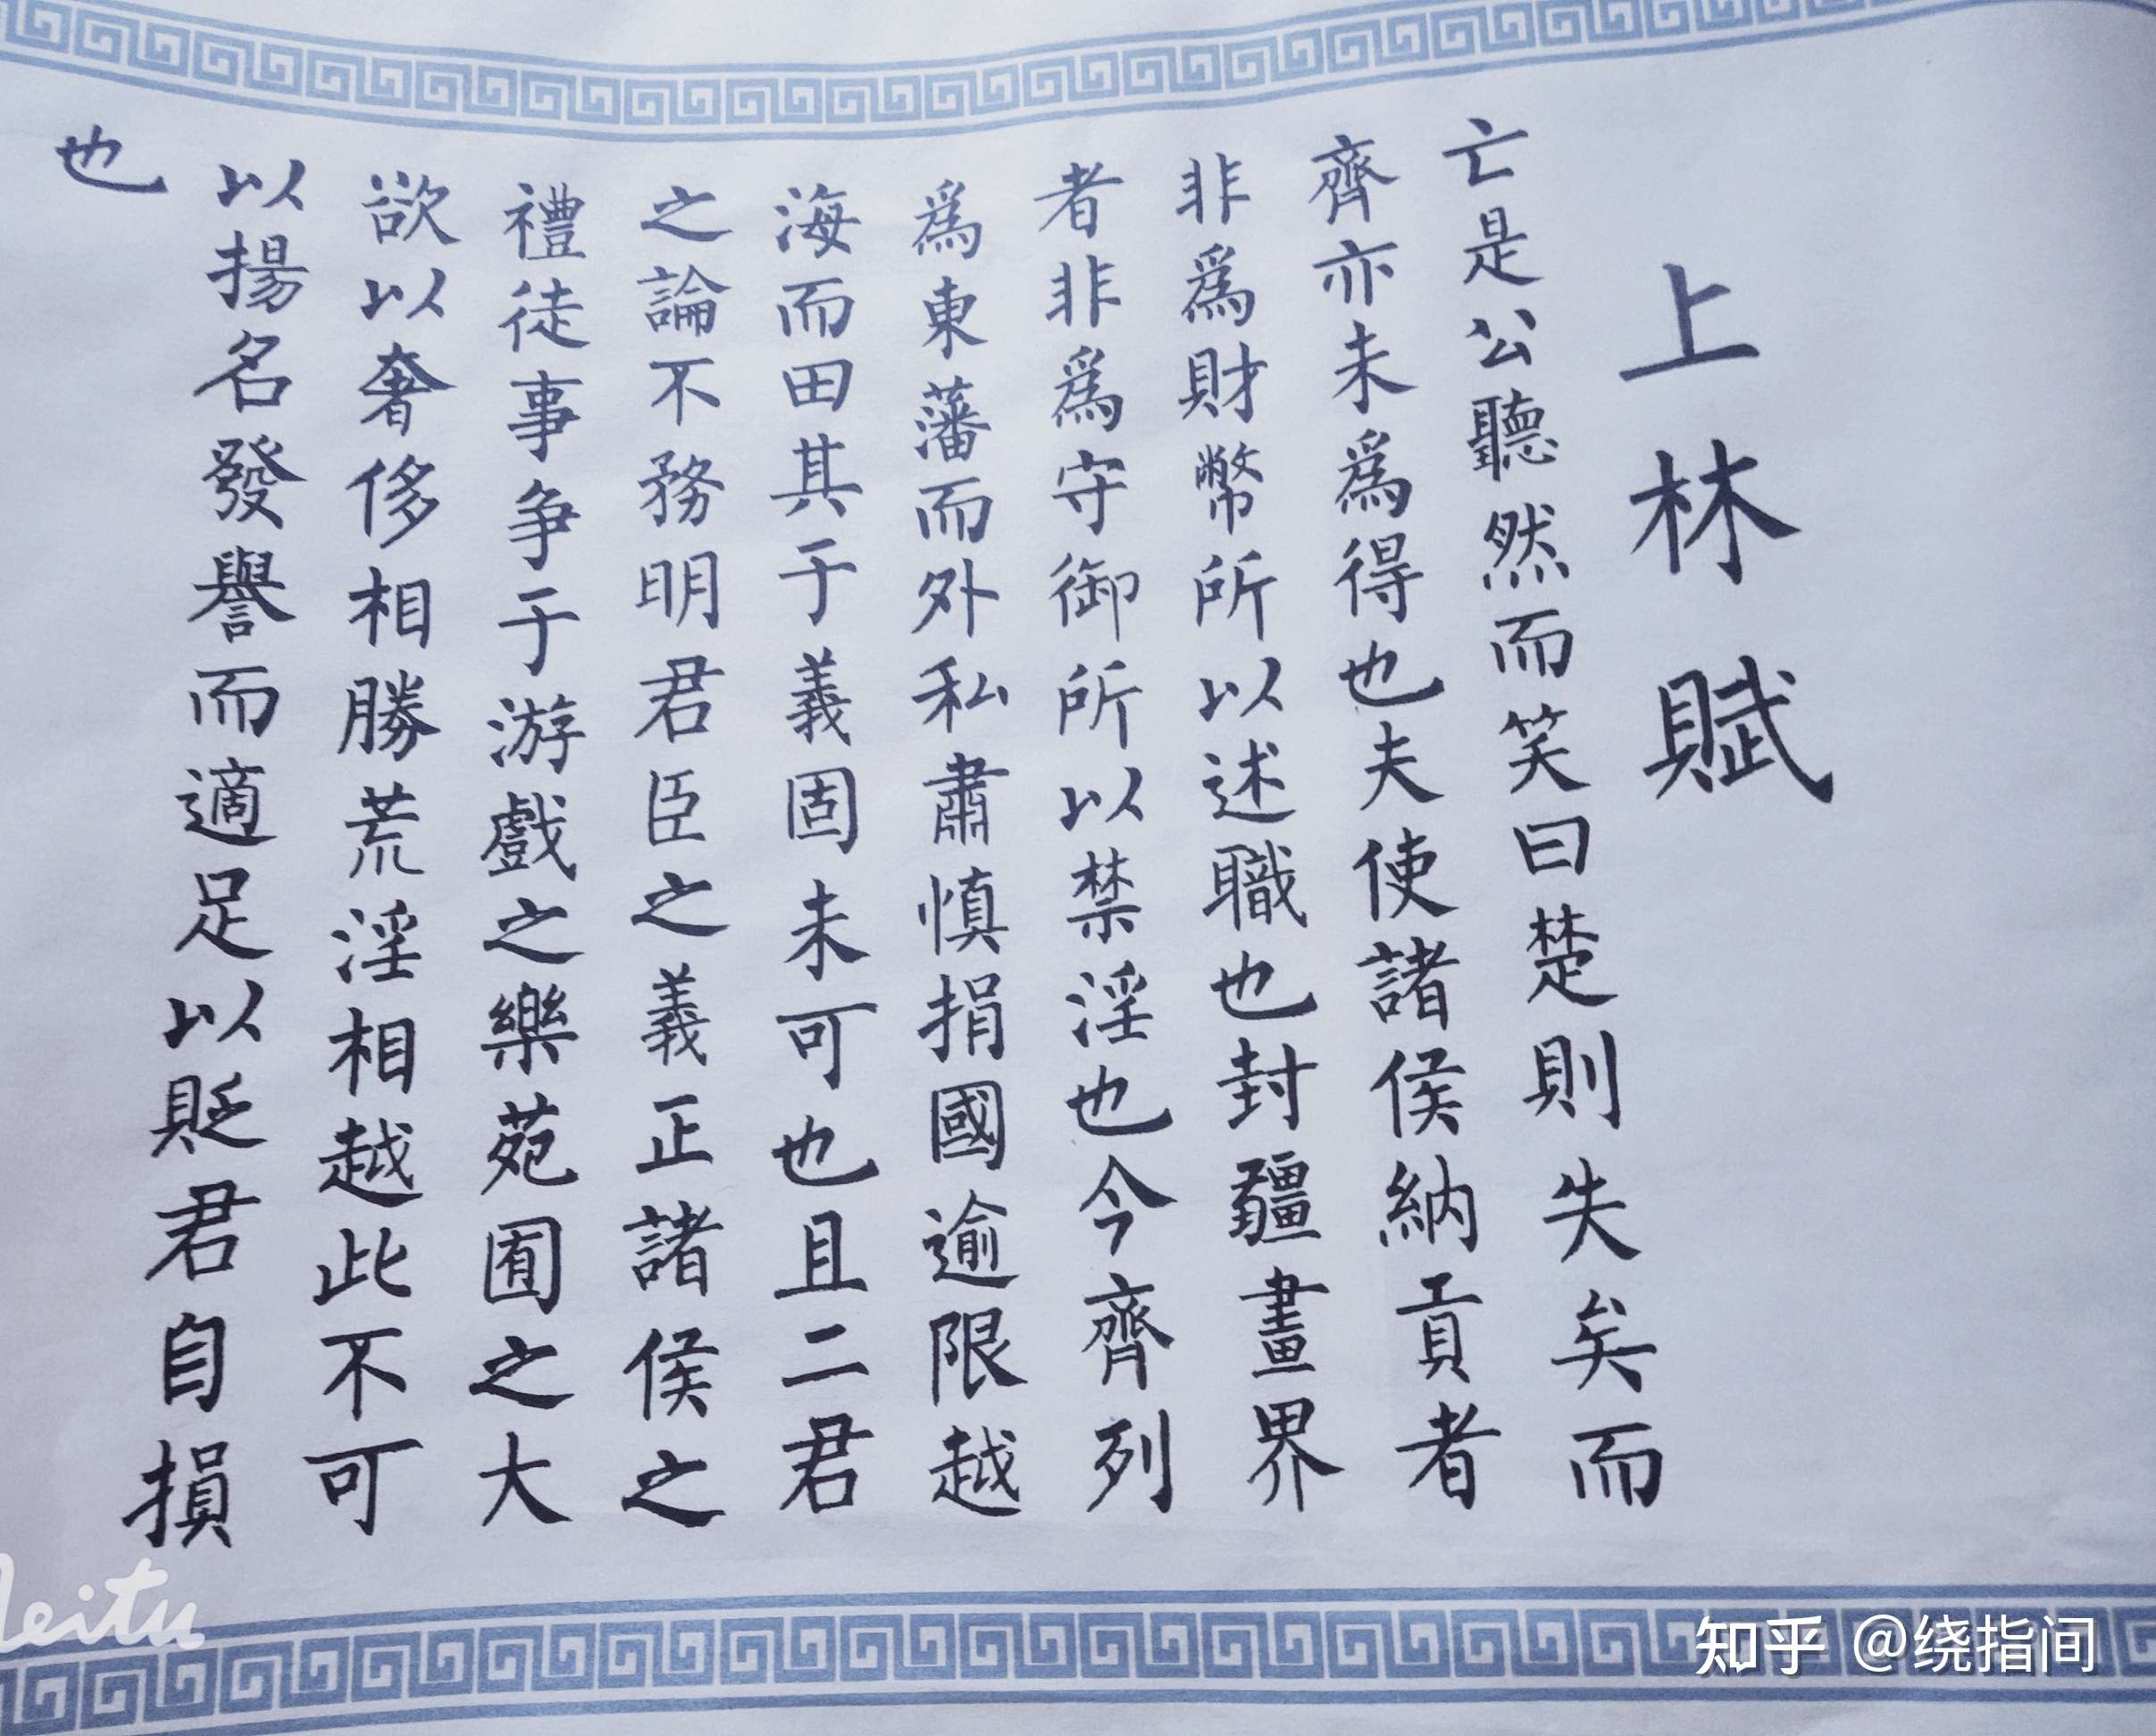 上林賦
亡是公聽然而笑曰楚則失矣而
齊亦未爲得也夫使諸侯納貢者
非爲財幣所以述職也封疆畫界
者非爲守御所以禁淫也今齊列
爲東藩而外私肅慎捐國逾限越
海而田其于義固未可也且二君
之論不務明君臣之義正諸侯之
禮徒事争于游戲之樂苑囿之大
欲以奢侈相勝荒淫相越此不可
以揚名發譽而適足以貶君自損
也
Meitu
知乎 @绕指间